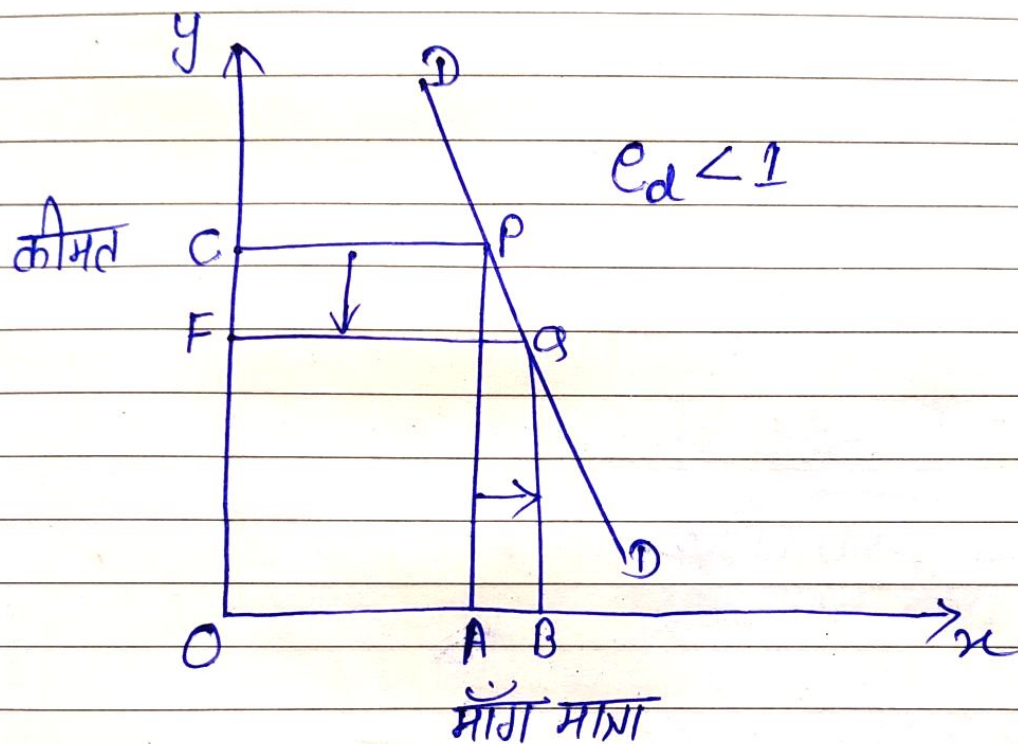 y
D
e_d < 1
कीमत C P
F Q
D
O A B x
माँग मात्रा